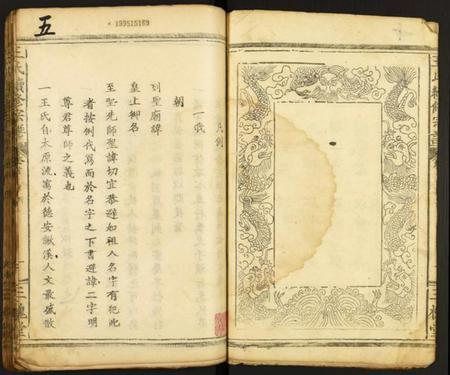 五
199515169
凡例
一我
朝
列聖廟諱
皇上御名
至聖先師聖諱切宜恭避如祖人名字有犯此
者按例代寫而於名字之下書避諱二字明
尊君尊師之義也
一王氏自太原流寓於德安敷溪人文最盛散
王氏續修宗譜
三槐堂
三槐堂